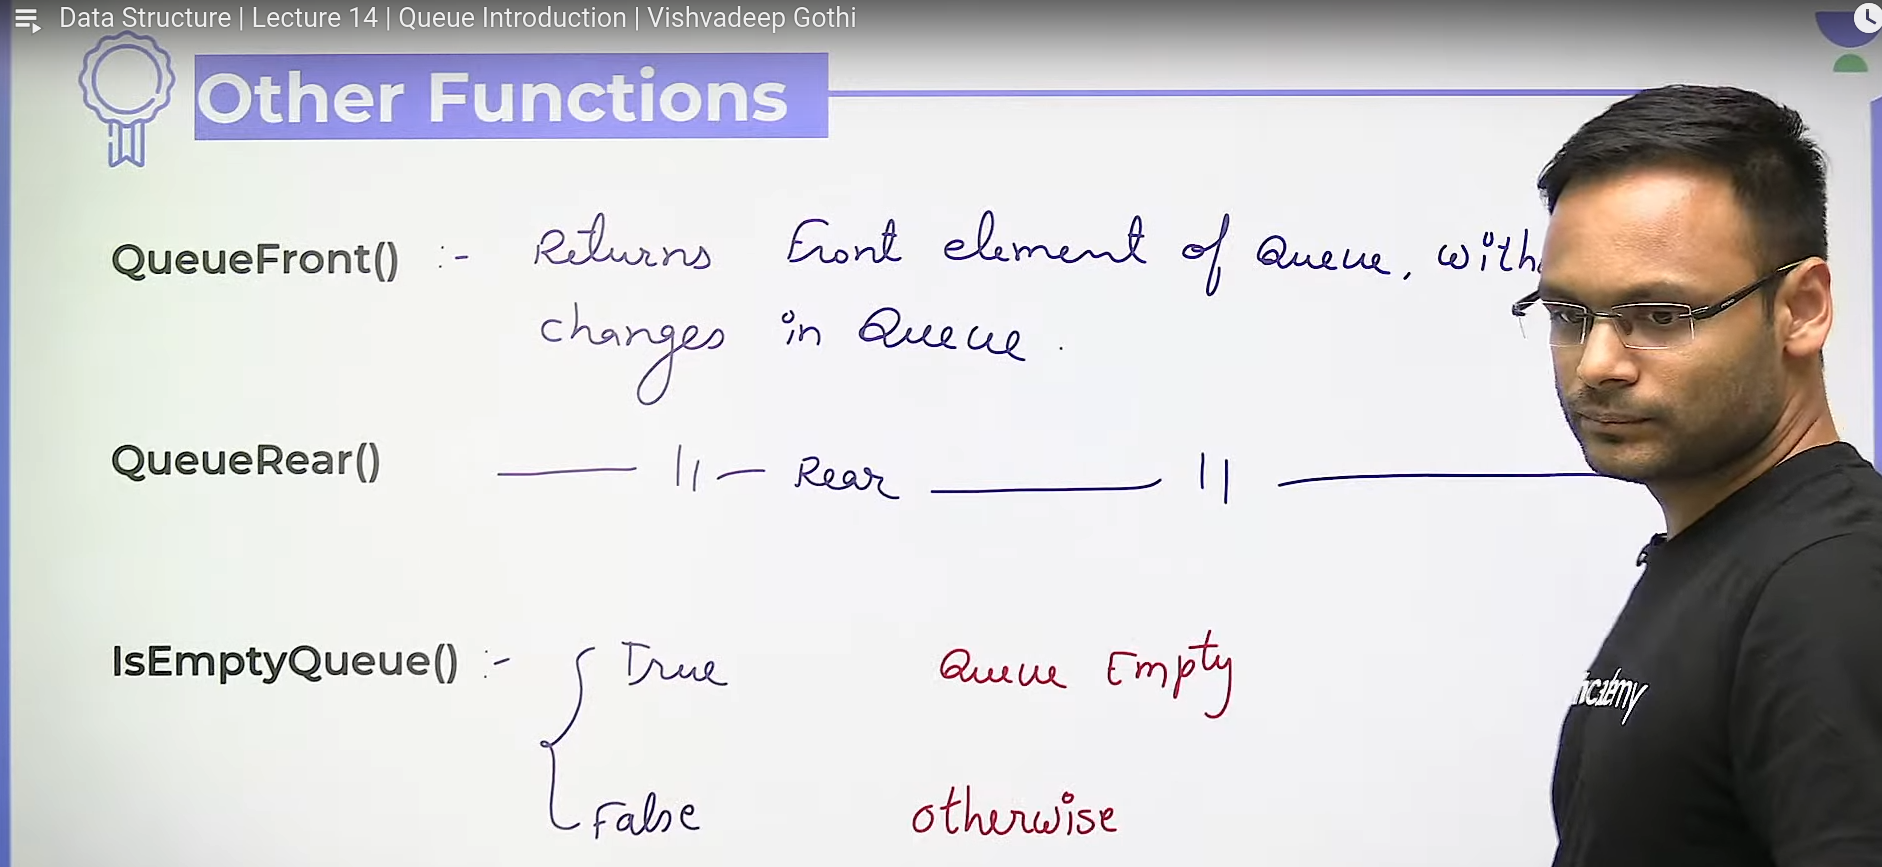 Data Structure | Lecture 14 | Queue Introduction | Vishvadeep Gothi
Other Functions
QueueFront() :- Returns Front element of Queue,
changes in Queue.
QueueRear() —— || — Rear —— || ——
IsEmptyQueue() :- { True Queue Empty
False otherwise